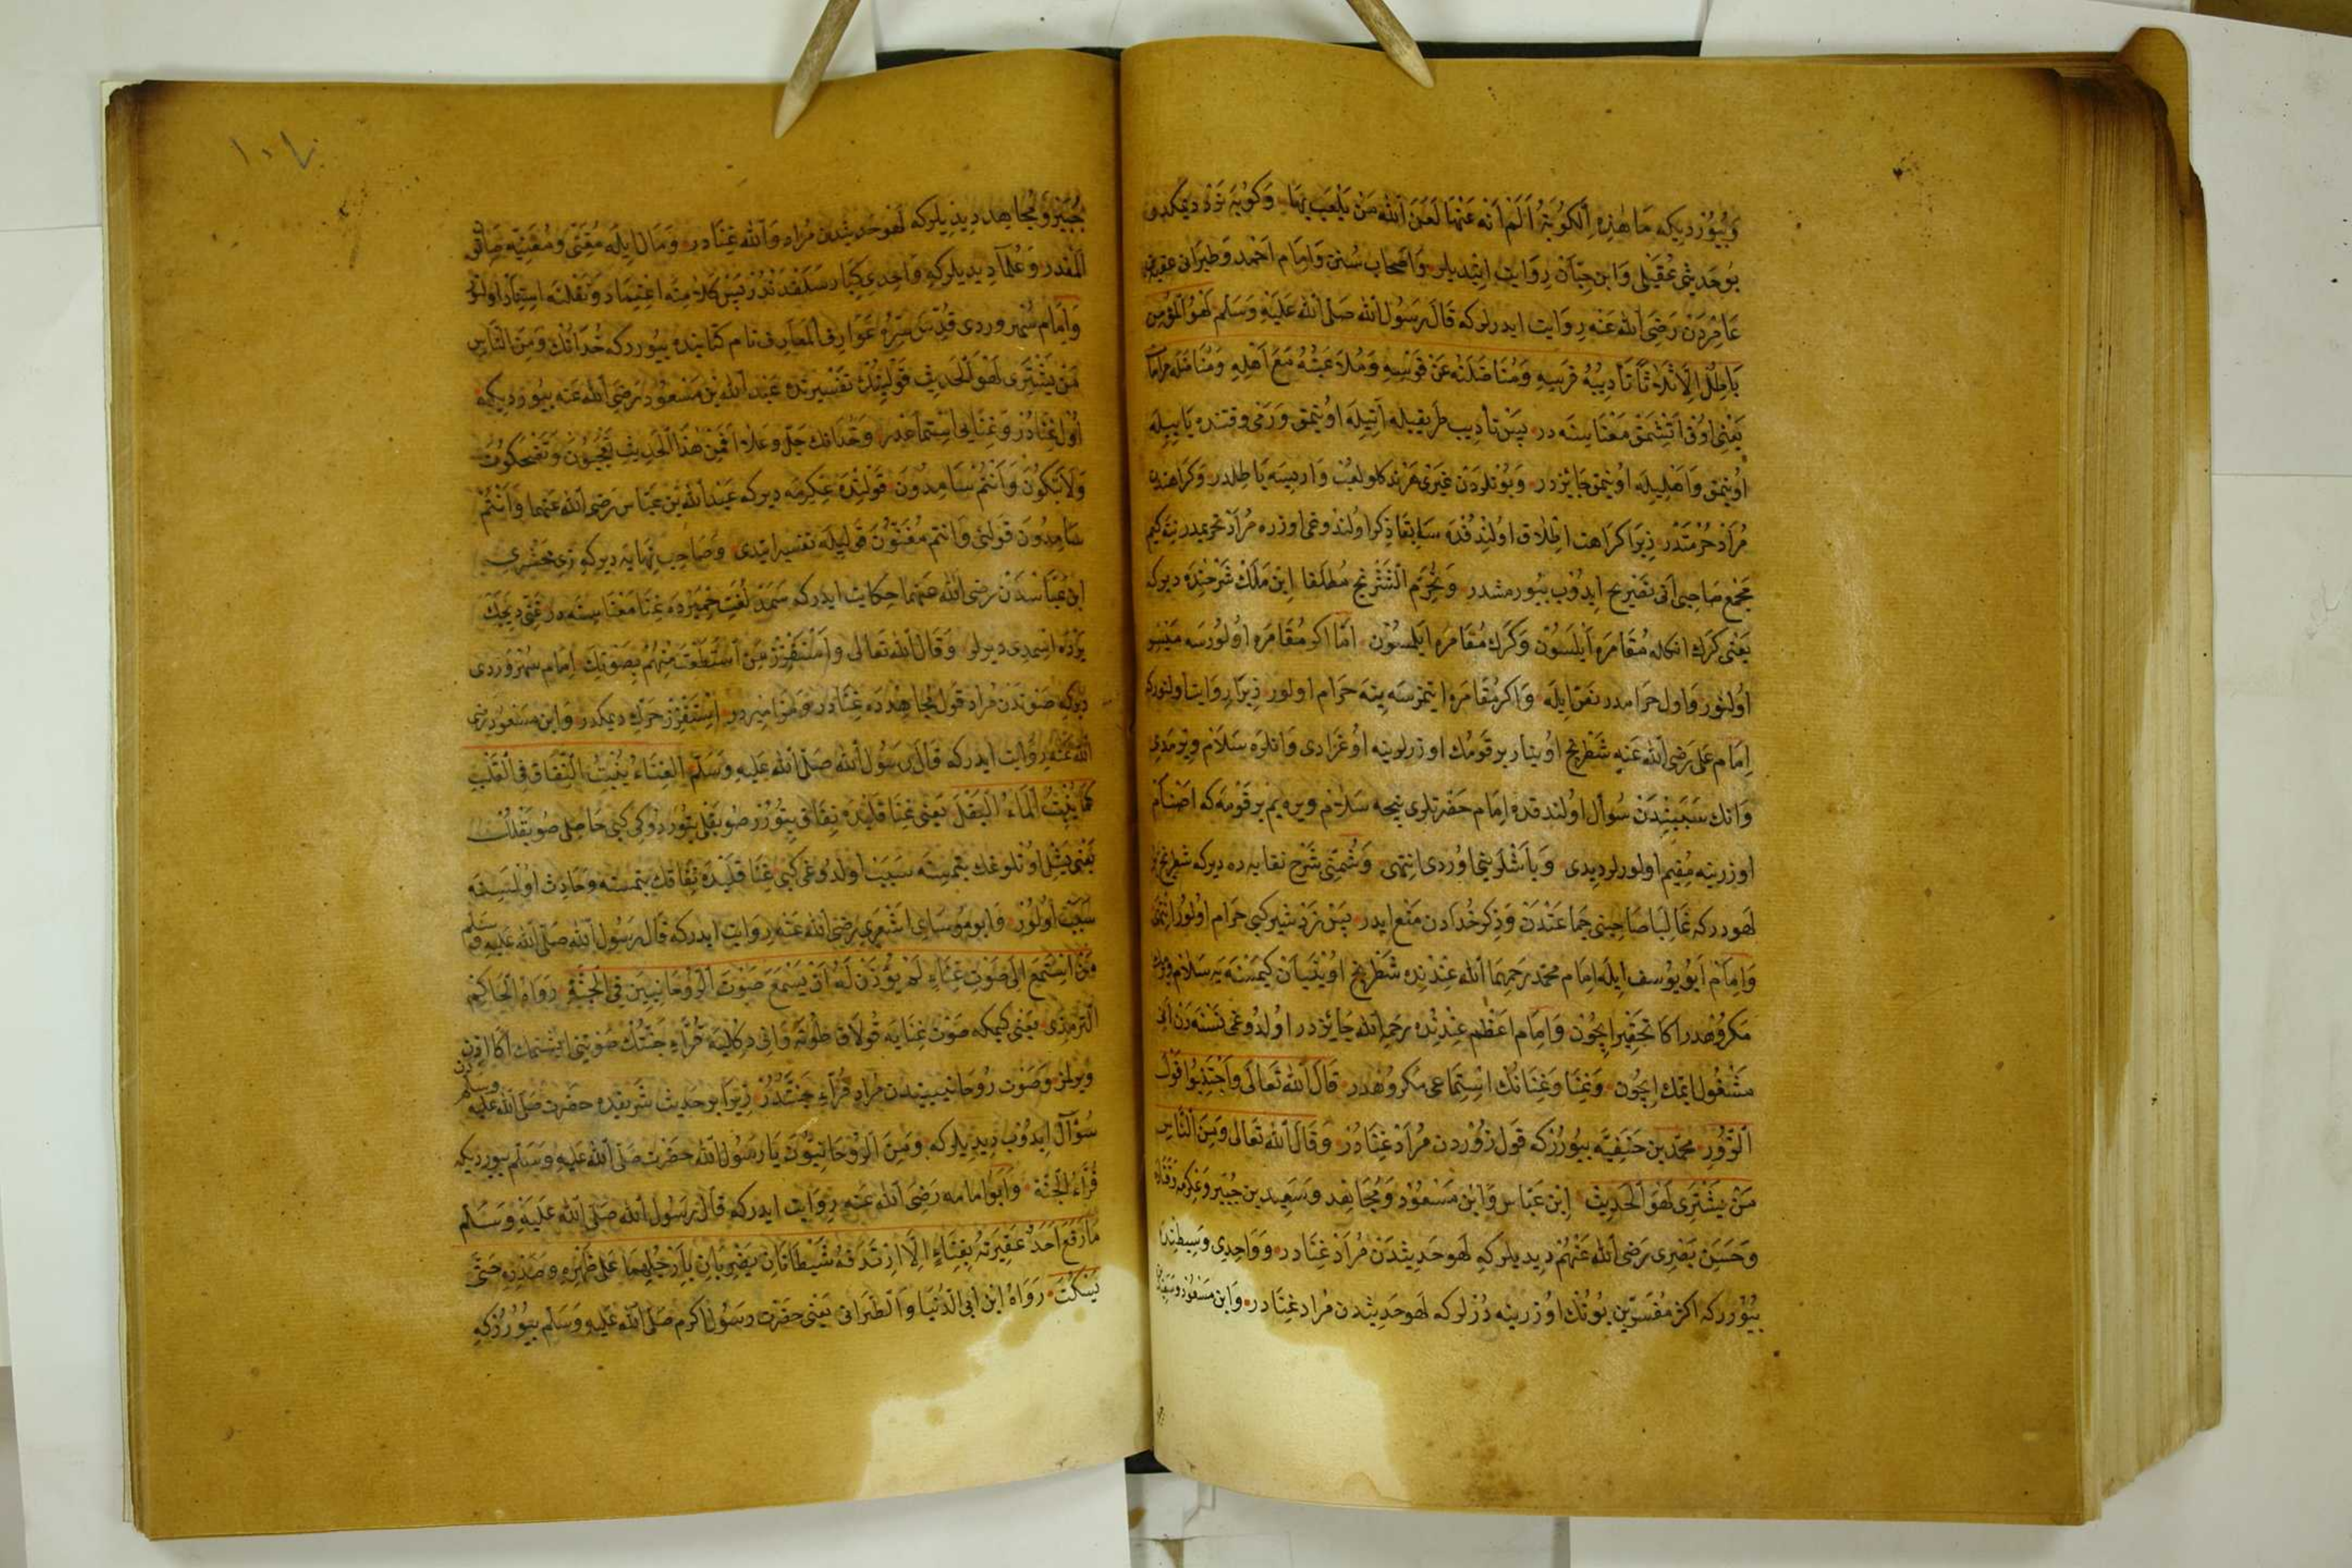 وبيوردیکه ما هذه الكوبة ألم أنه عنها لعن الله من يلعب بها وكوبه نرد دیمکدر
بو حدیثی عقیلی وابن حبان روایت ایتدیلر واصحاب سنن وامام احمد وطبرانی عقبه بن
عامردن رضی الله عنه روایت ایدرلر که قال رسول الله صلی الله علیه وسلم لهو المؤمن
باطل الا ثلاثا تأديبه فرسه ومناضلته عن قوسه وملاعبته مع اهله
یعنی اوق آتشمق معناسنه در پس تأدیب طریقیله آتیله اوینمق ورمی وقتنده یاییله
اوینمق واهلیله اوینمق جایزدر وبونلردن غیری هر نه کلو لعب وار ایسه باطلدر وکراهتدن
مراد حرمتدر زیرا کراهت اطلاق اولندقده سابقا ذکر اولندوغی اوزره مراد تحریمدر
مجمع صاحبی آنی تصریح ایدوب بیورمشدر ویحرم الشطرنج مطلقا ابن ملک شرحنده دیرکه
یعنی کرک انکله مقامره ایلسون وکرک مقامره ایلمسون اما اکر مقامره اولورسه میسر
اولنور واول حرامدر نص ایله واکر مقامره ایتمزسه ینه حرام اولور زیرا روایت اولنورکه
امام علی رضی الله عنه شطرنج اوینار بر قومک اوزرلرینه اوغرادی وانلره سلام ویرمدی
وانک سببیندن سؤال اولندقده امام حضرتلری نیجه سلام ویره یم بر قومه که اصنام
اوزرینه مقیم اولورلر دیدی وباشلرینی اوردی انتهی وشمنی شرح نقایه ده دیرکه شطرنج بر
لهودرکه غالبا صاحبنی جماعتدن وذکر خدادن منع ایدر پس نردشیر کبی حرام اولور انتهی
وامام ابو یوسف ایله امام محمد رحمهما الله عندنده شطرنج اوینیان کیمسنه یه سلام ویرمک
مکروهدر اکا تحقیر ایچون وامام اعظم عندنده رحمه الله جایزدر اولدوغی نسنه دن آنی
مشغول ایتمک ایچون وغنا وغنانک استماعی مکروهدر قال الله تعالی واجتنبوا قول
الزور محمد بن حنفیه بیوررکه قول زوردن مراد غنادر وقال الله تعالی ومن الناس
من یشتری لهو الحدیث ابن عباس وابن مسعود ومجاهد وسعید بن جبیر وعکرمه وقتاده
وحسن بصری رضی الله عنهم دیدیلرکه لهو حدیثدن مراد غنادر وواحدی وسیطنده
بیوررکه اکثر مفسرین بونک اوزرینه درلر که لهو حدیثدن مراد غنادر وابن مسعود وسعید بن
جبیر ومجاهد دیدیلرکه لهو حدیثدن مراد والله غنادر ومال ایله مغنی ومغنیه صاتون
المقدر وعلما دیدیلرکه واحدی کبار سلفدندر پس کلامنه اعتماد ونقلنه استناد اولنور
وامام سهروردی قدس سره عوارف المعارف نام کتابنده بیوررکه خدانک ومن الناس
من یشتری لهو الحدیث قولینک تفسیرنده عبد الله بن مسعود رضی الله عنه بیوردیکه
اول غنادر وغنایی استماعدر وخدانک جل وعلا افمن هذا الحدیث تعجبون وتضحکون
ولا تبکون وانتم سامدون قولنده عکرمه دیرکه عبد الله بن عباس رضی الله عنهما وانتم
سامدون قولنی وانتم مغنون قولیله تفسیر ایتدی وصاحب نهایه دیرکه زمخشری
ابن عباسدن رضی الله عنهما حکایت ایدرکه سمد لغت حمیرده غنا معناسنه در غنی دیجک
یرده اسمدی دیرلر وقال الله تعالی واستفزز من استطعت منهم بصوتک امام سهروردی
دیرکه صوتدن مراد قول مجاهدده غنادر ومزامیردر استفزز حرک دیمکدر وابن مسعود رضی
الله عنه روایت ایدرکه قال رسول الله صلی الله علیه وسلم الغناء ینبت النفاق فی القلب
کما ینبت الماء البقل یعنی غنا قلبده نفاق بیتورر صو بقلی بیتوردوکی کبی حاصلی صو بقلنک
یعنی یشل اوتلرغک بتمسنه سبب اولدوغی کبی غنا قلبده نفاقک بتمسنه وحادث اولمسنه
سبب اولور وابو موسای اشعری رضی الله عنه روایت ایدرکه قال رسول الله صلی الله علیه وسلم
من استمع الی صوت غناء لم یؤذن له ان یسمع صوت الروحانیین فی الجنة رواه الحاکم
الترمذی یعنی کیمکه صوت غنایه قولاق طوته وآنی دکلیه قراء جنتک صوتنی ایشتمک اکا اذن
ویرلمز وصوت روحانییندن مراد قراء جنتدر زیرا بو حدیث شریفده حضرت صلی الله علیه وسلمدن
سؤال ایدوب دیدیلرکه ومن الروحانیون یا رسول الله حضرت صلی الله علیه وسلم بیوردیکه
قراء الجنة وابو امامه رضی الله عنه روایت ایدرکه قال رسول الله صلی الله علیه وسلم
ما رفع احد عقیرته بغناء الا ارتدفه شیطانان یضربان بأرجلهما علی ظهره وصدره حتی
یسکت رواه ابن ابی الدنیا والطبرانی یعنی حضرت رسول اکرم صلی الله علیه وسلم بیوررکه